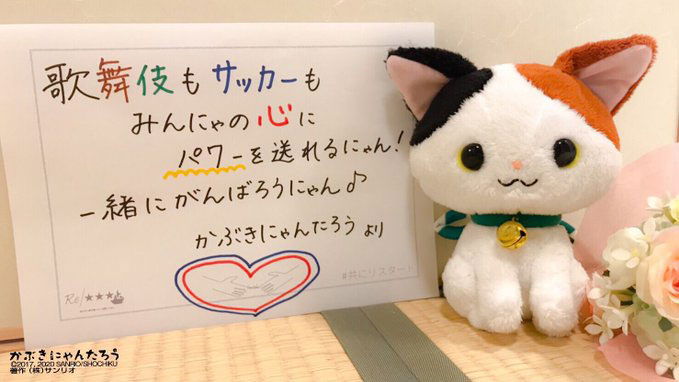 歌舞伎もサッカーも
みんにゃの心に
パワーを送れるにゃん!
一緒にがんばろうにゃん♪
かぶきにゃんたろう より
#共にリスタート
Re/★★★
かぶきにゃんたろう
©2017, 2020 SANRIO/SHOCHIKU
著作 (株)サンリオ